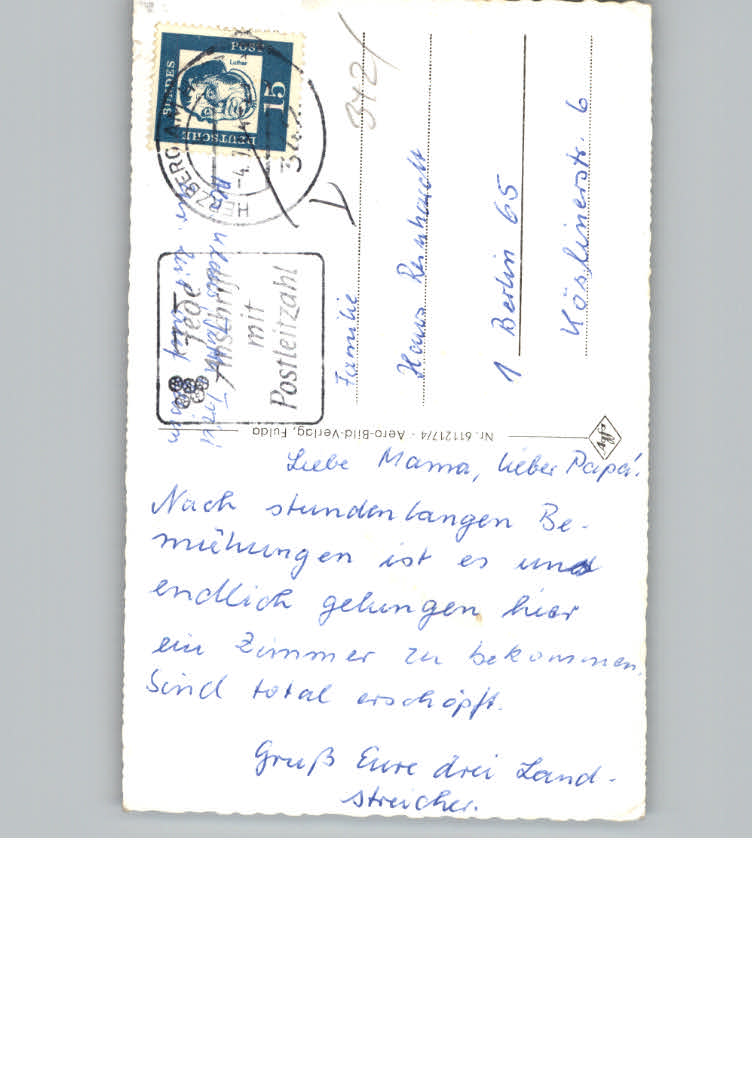 Liebe Mama, lieber Papa!
Nach stundenlangen Be-
mühungen ist es uns
endlich gelungen hier
ein Zimmer zu bekommen.
Sind total erschöpft.
Gruß Eure drei Land-
streicher.
Familie
Hans Reinhardt
1 Berlin 65
Kösliner str. 6
342/
DEUTSCHE
BUNDES
POST
Luther
15
-4.7.
Jede
Anschrift
mit
Postleitzahl
Nr. 611217/4 - Aero-Bild-Verlag, Fulda